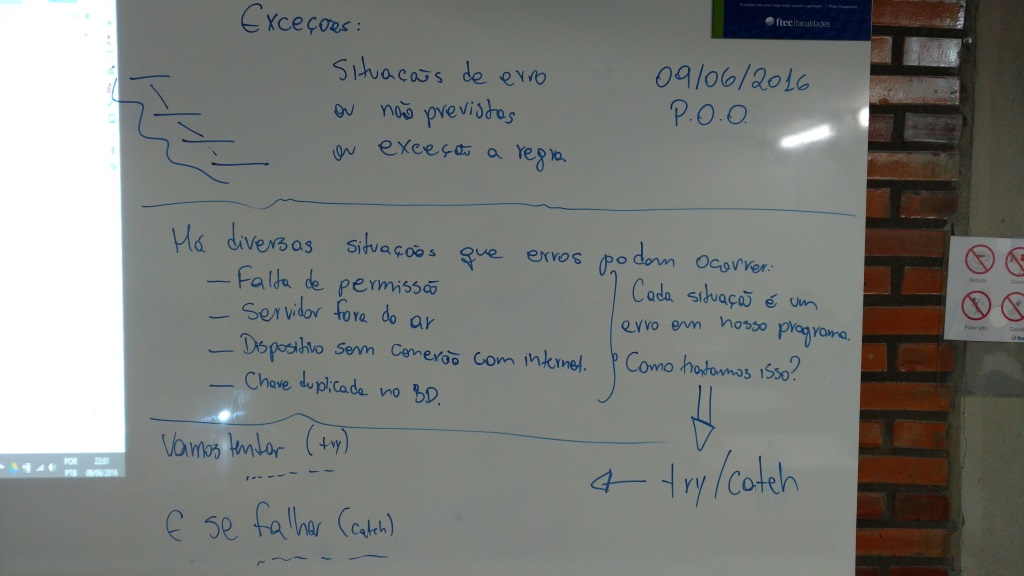 ftec|faculdades
Exceções:
Situacaões de erro
ou não previstas
ou exceção a regra.
09/06/2016
P.O.O.
Há diversas situações que erros podem ocorrer:
— Falta de permissão
— Servidor fora do ar
— Dispositivo sem conexão com internet.
— Chave duplicada no BD.
Cada situação é um
erro em nosso programa.
Como tratamos isso?
try/catch
Vamos tentar (try)
E se falhar (catch)
POR
PTB
22:01
09/06/2016